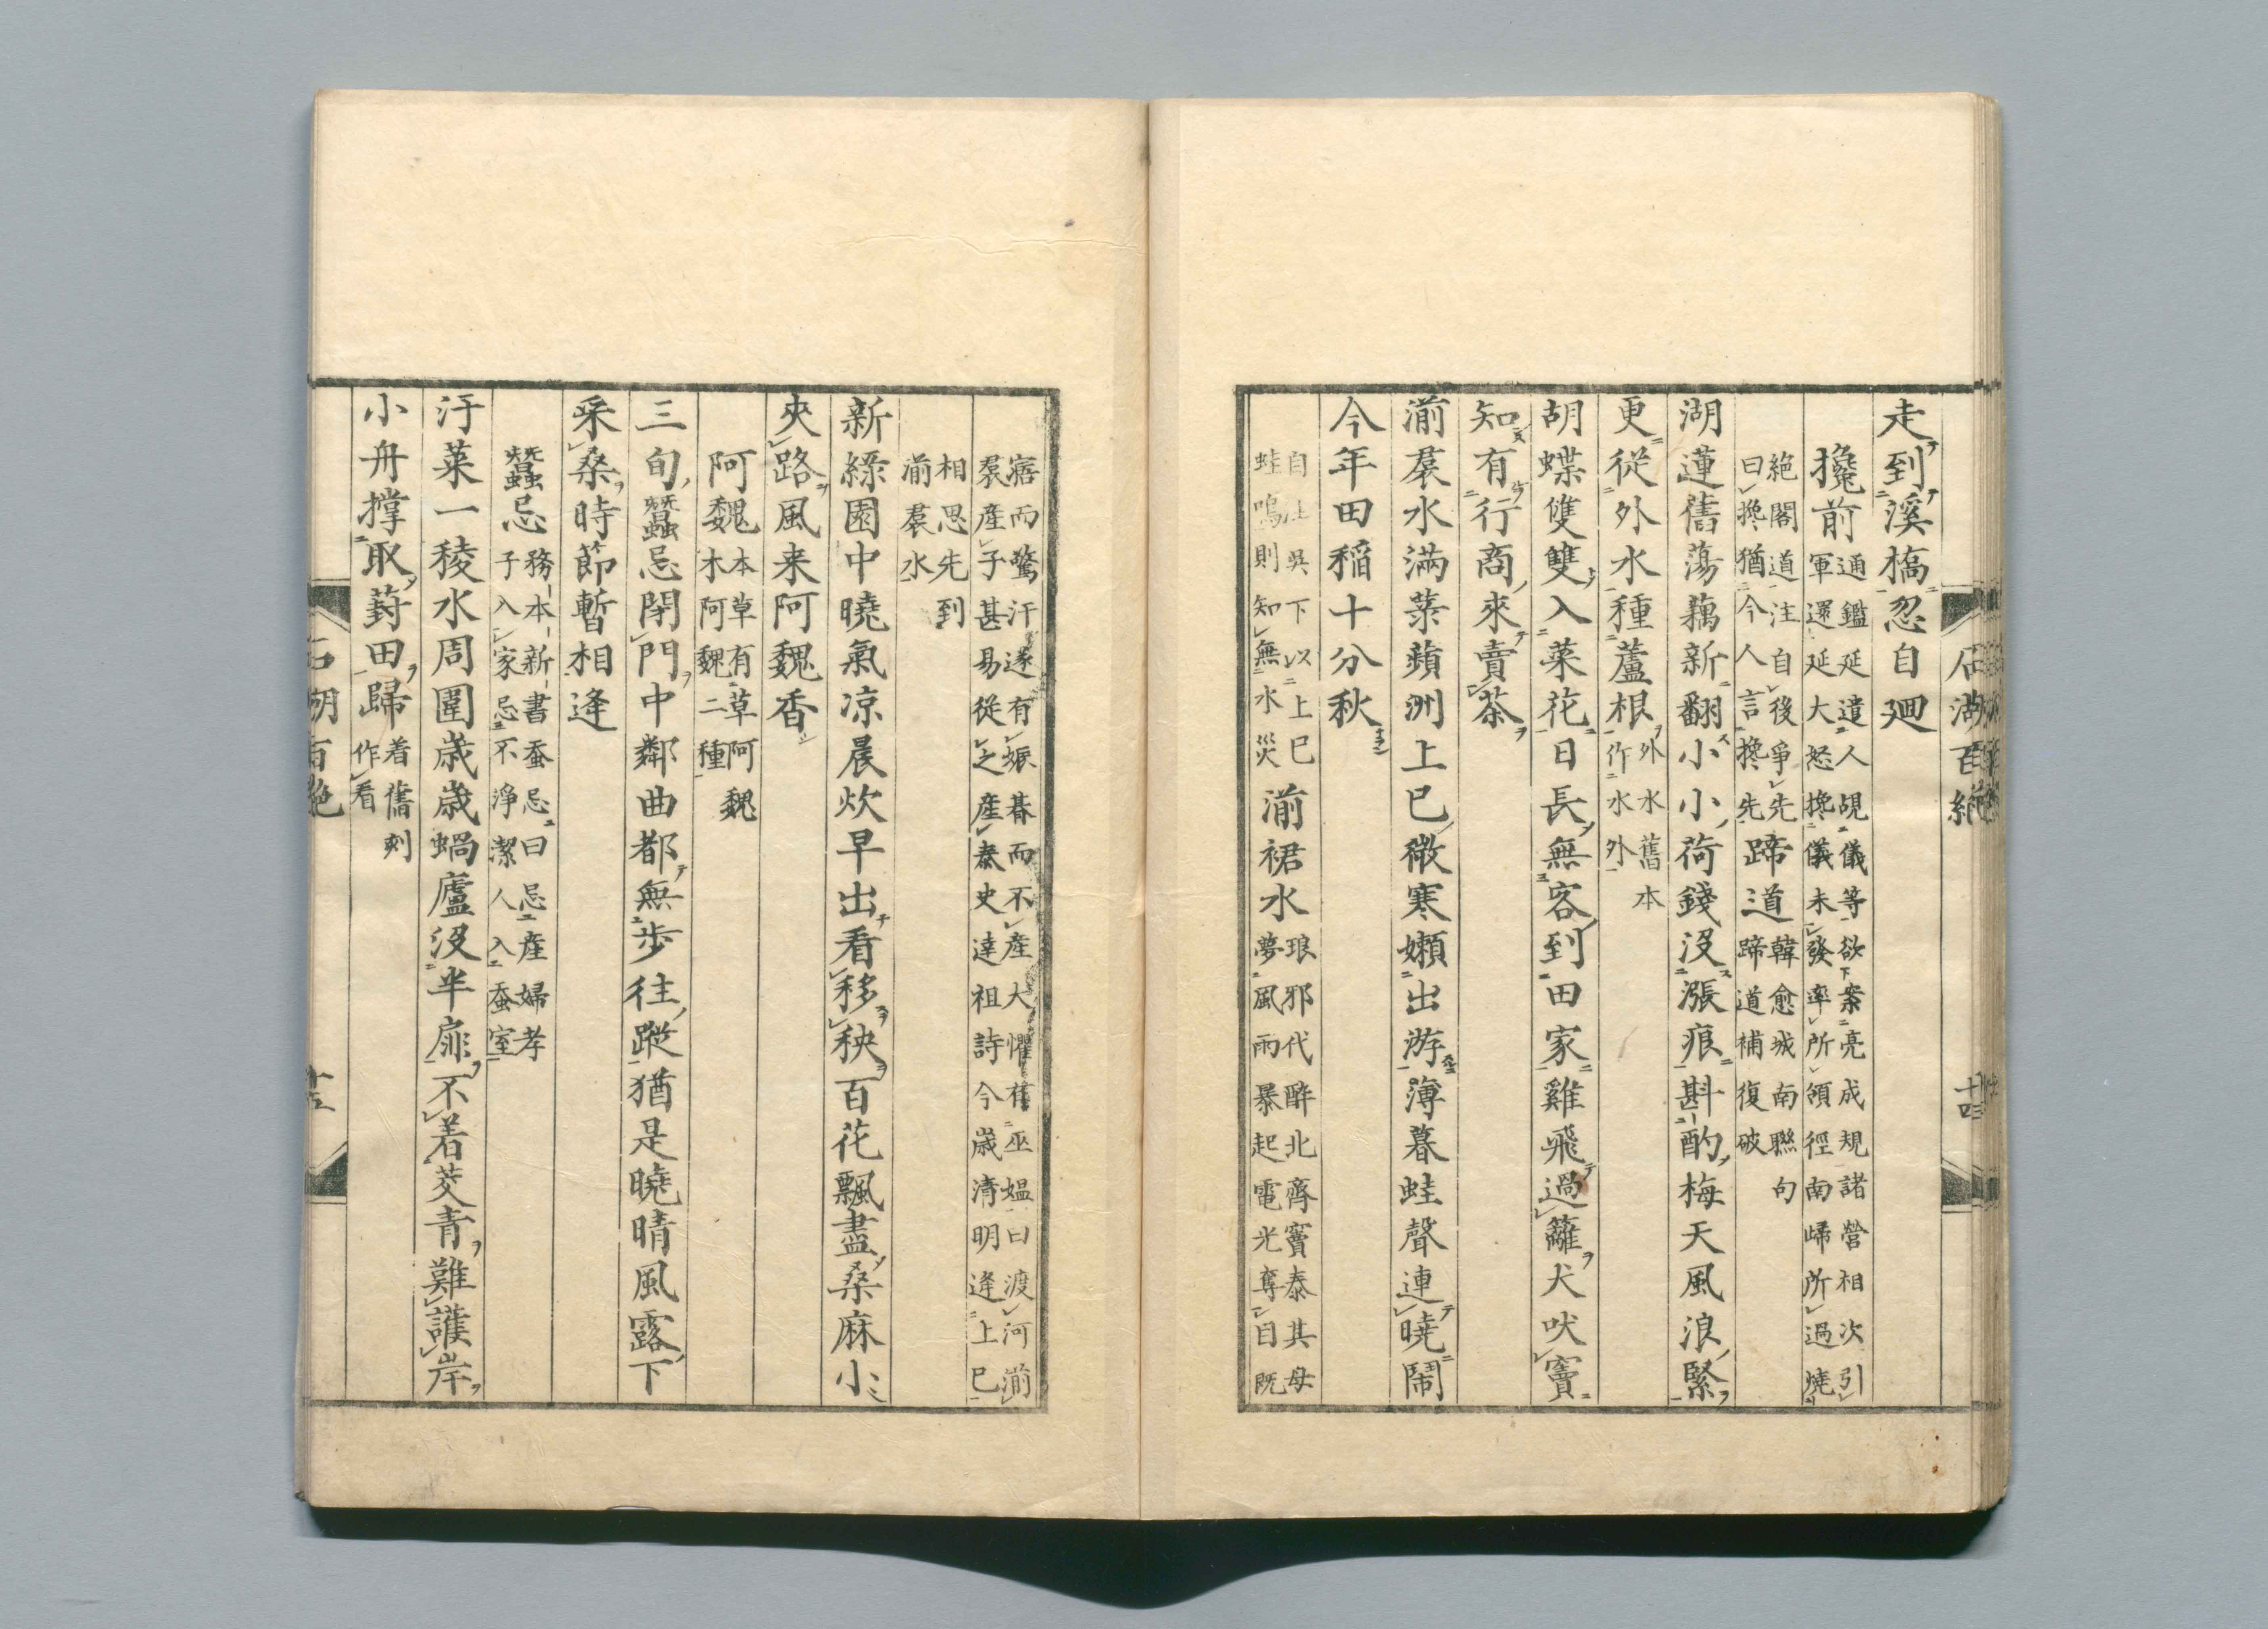 石湖百絶
十四
走到溪橋忍自廻
攙前
通鑑延遣人覘儀等欲案亮成規諸營相次引
軍還延大怒攙儀未發率所領徑南歸所過燒
絶閣道注自後爭先
曰攙猶今人言攙先
蹄道
韓愈城南聯句
蹄道補復破
湖蓮舊蕩藕新翻小小荷錢没漲痕斟酌梅天風浪緊
更従外水種蘆根
外水舊本
作水外
胡蝶雙雙入菜花日長無客到田家雞飛過籬犬吠竇
知有行商來賣茶
湔裠水滿菉蘋洲上巳微寒嬾出游薄暮蛙聲連曉鬧
今年田稲十分秋
自注吳下以上巳
蛙鳴則知無水災
湔裙水
琅邪代醉北齊竇泰其母
夢風雨暴起電光奪目既
寤而驚汗遂有娠朞而不產大懼有巫媼曰渡河湔
裠産子甚易從之産泰史達祖詩今歳清明逢上巳
相思先到
湔裠水
新綠園中曉氣凉晨炊早出看移秧百花飄盡桑麻小
夾路風来阿魏香
阿魏
本草有草阿魏
木阿魏二種
三旬蠶忌閉門中鄰曲都無步往蹤猶是曉晴風露下
采桑時節暫相逢
蠶忌
務本新書蚕忌曰忌產婦孝
子入家忌不淨潔人入蚕室
汙萊一稜水周圍歳歳蝸廬没半扉不着茭青難護岸
小舟撑取葑田歸
着舊刻
作看
石湖百絶
十五